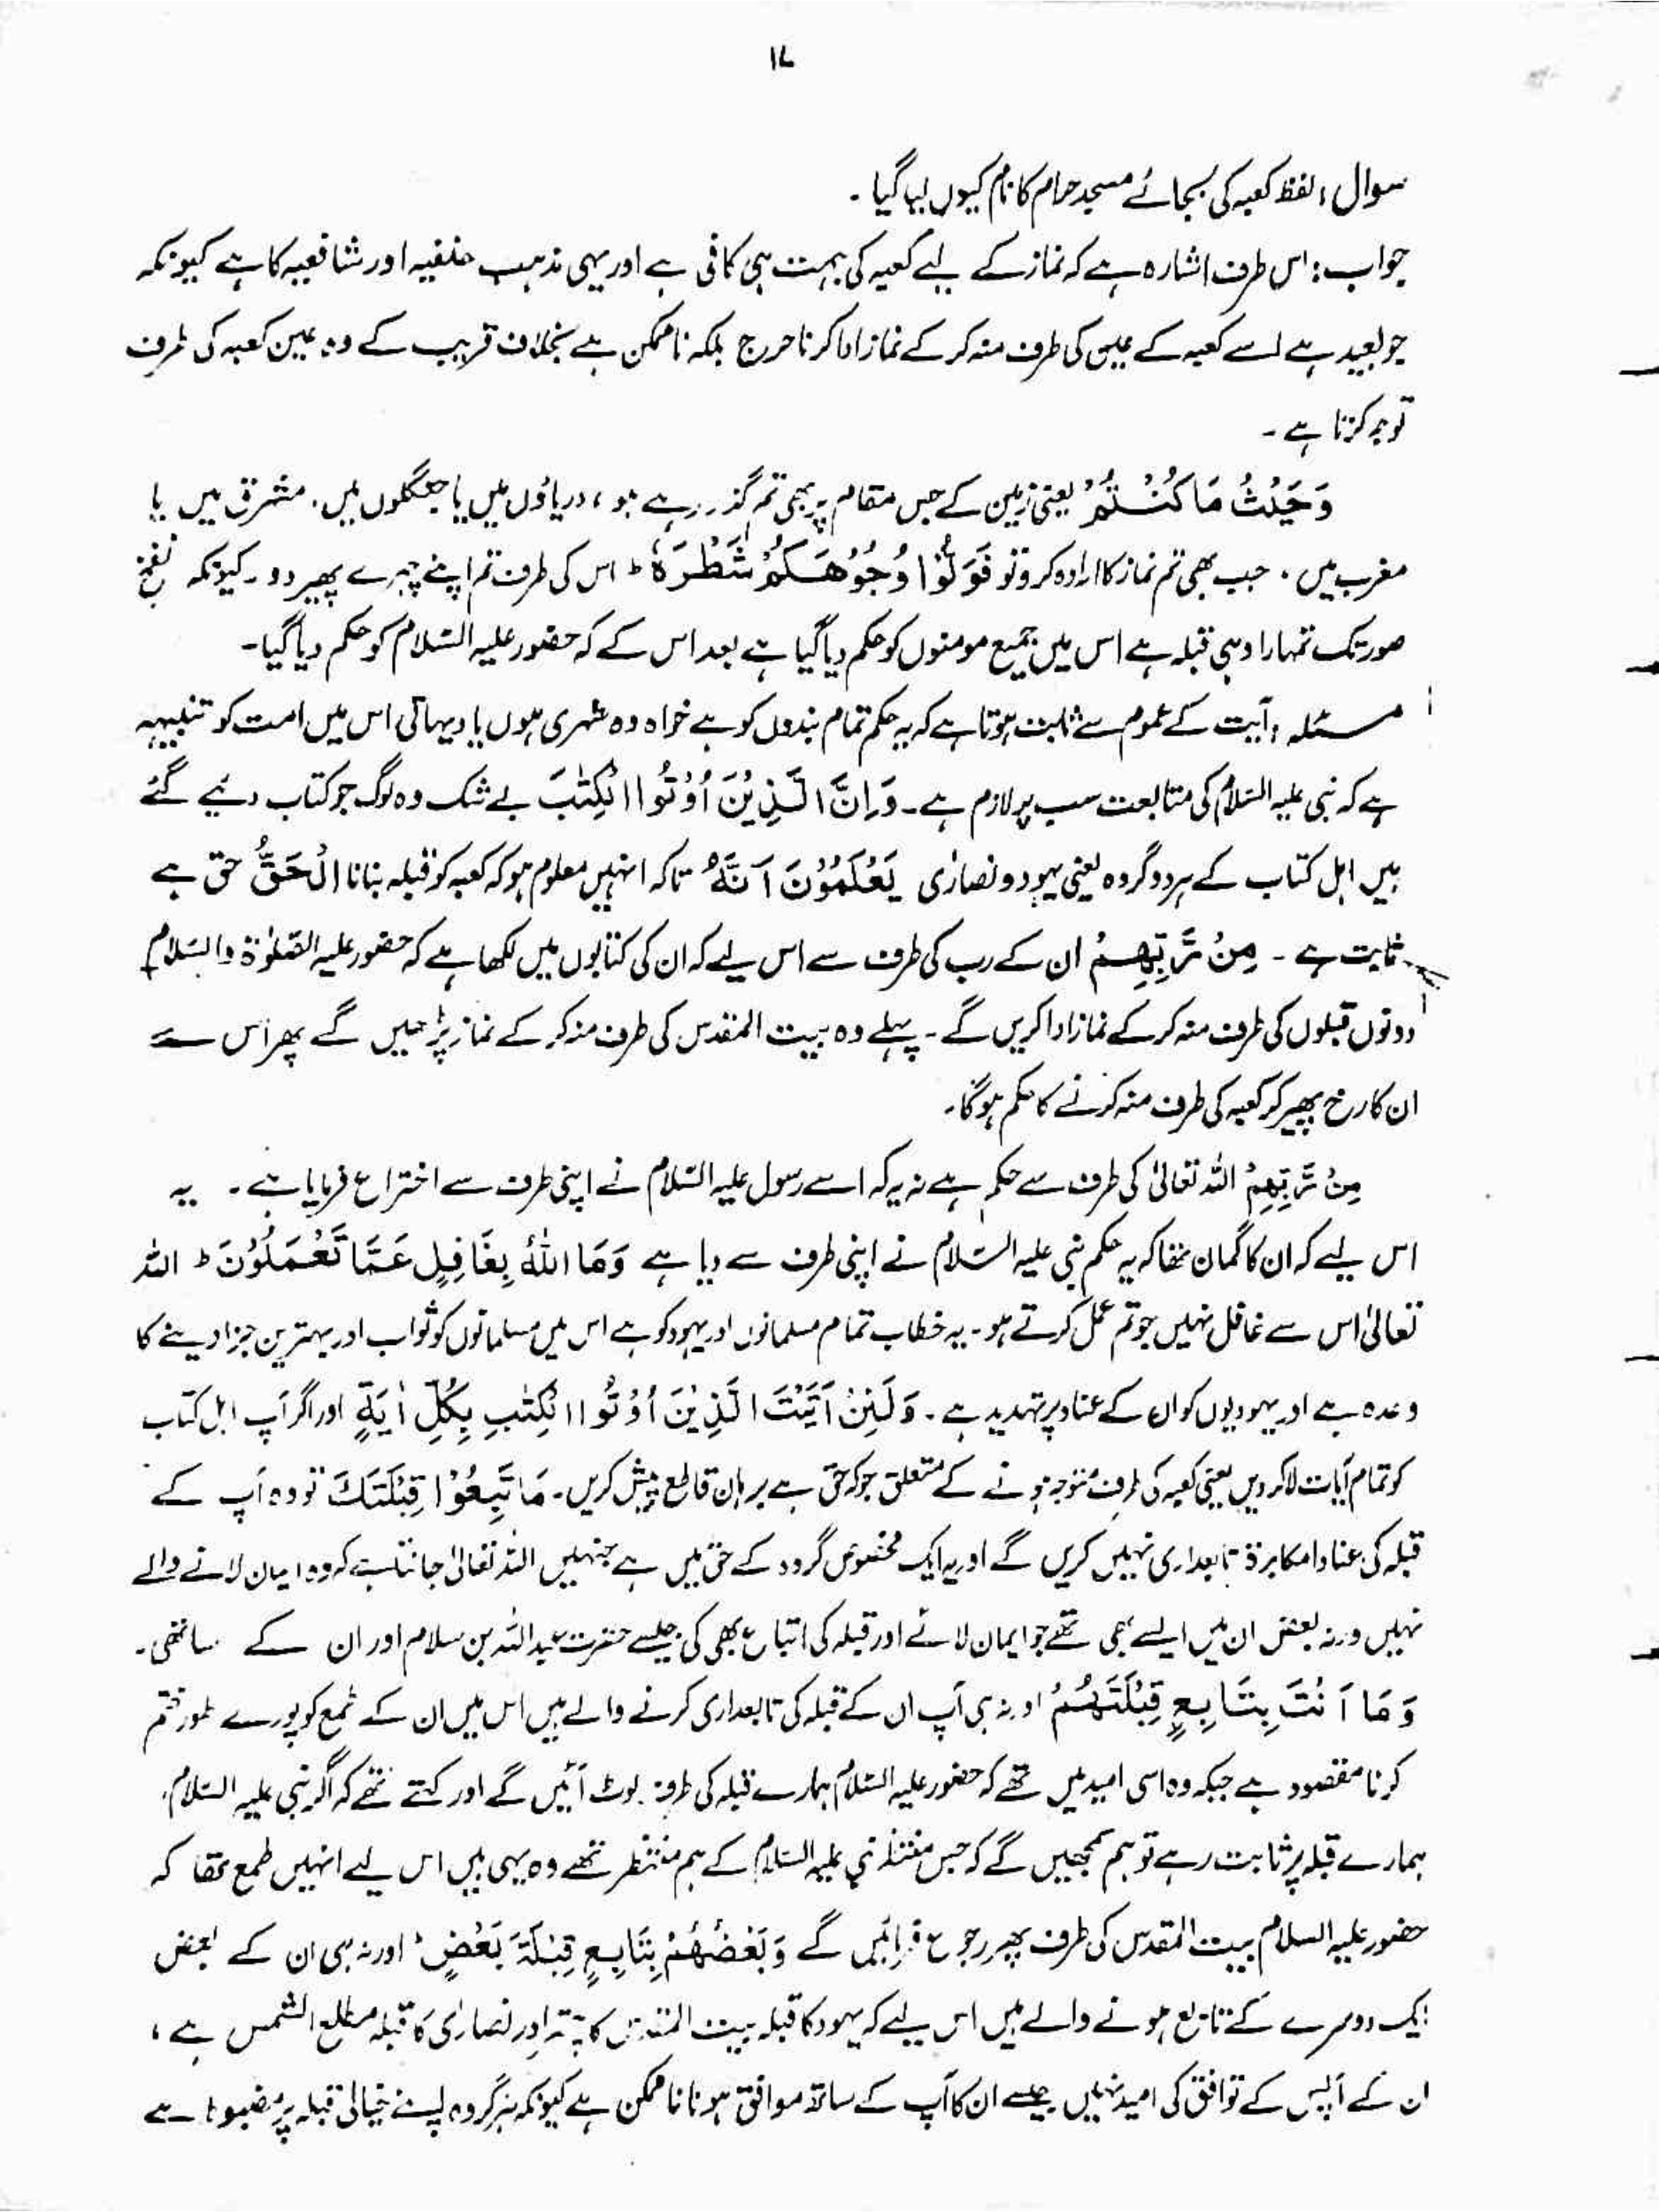 ۱۷
سوال : لفظ کعبہ کی بجائے مسجد حرام کا نام کیوں لیا گیا ۔
جواب : اس طرف اشارہ ہے کہ نماز کے لیے کعبہ کی جہت ہی کافی ہے اور یہی مذہب حنفیہ اور شافعیہ کا ہے کیونکہ
جو بعید ہے اسے کعبہ کے عین کی طرف منہ کر کے نماز ادا کرنا حرج بلکہ ناممکن ہے بخلاف قریب کے وہ عین کعبہ کی طرف
توجہ کرتا ہے ۔
وَحَيْثُ مَا كُنْتُمْ یعنی زمین کے جس مقام پر بھی تم گذر رہے ہو ، دریاؤں میں یا جنگلوں میں . مشرق میں یا
مغرب میں ، جب بھی تم نماز کا ارادہ کرو تو فَوَلُّوْا وُجُوْهَكُمْ شَطْرَهٗ ط اس کی طرف تم اپنے چہرے پھیر دو ۔ کیونکہ نفخ
صور تک تمہارا وہی قبلہ ہے اس میں جمیع مومنوں کو حکم دیا گیا ہے بعد اس کے کہ حضور علیہ السّلام کو حکم دیا گیا ۔
مسئلہ : آیت کے عموم سے ثابت ہوتا ہے کہ یہ حکم تمام بندوں کو ہے خواہ وہ شہری ہوں یا دیہاتی اس میں امت کو تنبیہہ
ہے کہ نبی علیہ السّلام کی متابعت سب پر لازم ہے ۔ وَاِنَّ الَّذِيْنَ اُوْتُوا الْكِتٰبَ بے شک وہ لوگ جو کتاب دئیے گئے
ہیں اہل کتاب کے ہر دو گروہ یعنی یہود و نصارٰی يَعْلَمُوْنَ اَنَّهُ تاکہ انہیں معلوم ہو کہ کعبہ کو قبلہ بنانا الْحَقُّ حق ہے
ثابت ہے ۔ مِنْ رَّبِّهِمْ ان کے رب کی طرف سے اس لیے کہ ان کی کتابوں میں لکھا ہے کہ حضور علیہ الصّلوٰۃ والسّلام
دونوں قبلوں کی طرف منہ کر کے نماز ادا کریں گے ۔ پہلے وہ بیت المقدس کی طرف منہ کر کے نماز پڑھیں گے پھر اس سے
ان کا رخ پھیر کر کعبہ کی طرف منہ کرنے کا حکم ہوگا ۔
مِنْ رَّبِّهِمْ اللہ تعالیٰ کی طرف سے حکم ہے نہ یہ کہ اسے رسول علیہ السّلام نے اپنی طرف سے اختراع فرمایا ہے ۔ یہ
اس لیے کہ ان کا گمان تھا کہ یہ حکم نبی علیہ السّلام نے اپنی طرف سے دیا ہے وَمَا اللّٰهُ بِغَافِلٍ عَمَّا تَعْمَلُوْنَ ط اللہ
تعالیٰ اس سے غافل نہیں جو تم عمل کرتے ہو ۔ یہ خطاب تمام مسلمانوں اور یہود کو ہے اس میں مسلمانوں کو ثواب اور بہترین جزا دینے کا
وعدہ ہے اور یہودیوں کو ان کے عناد پر تہدید ہے ۔ وَلَئِنْ اَتَيْتَ الَّذِيْنَ اُوْتُوا الْكِتٰبِ بِكُلِّ اٰيَةٍ اور اگر آپ اہل کتاب
کو تمام آیات لاکر دیں یعنی کعبہ کی طرف متوجہ ہونے کے متعلق جو کہ حق ہے برہان قاطع پیش کریں ۔ مَا تَبِعُوْا قِبْلَتَكَ تو وہ آپ کے
قبلہ کی عنادا مکابرۃ تابعداری نہیں کریں گے اور یہ ایک مخصوص گروہ کے حق میں ہے جنہیں اللہ تعالیٰ جانتا ہے کہ وہ ایمان لانے والے
نہیں ورنہ بعض ان میں ایسے بھی تھے جو ایمان لائے اور قبلہ کی اتباع بھی کی جیسے حضرت عبداللہ بن سلام اور ان کے ساتھی ۔
وَمَا اَنْتَ بِتَابِعٍ قِبْلَتَهُمْ اور نہ ہی آپ ان کے قبلہ کی تابعداری کرنے والے ہیں اس میں ان کے طمع کو پورے طور ختم
کرنا مقصود ہے جبکہ وہ اسی امید میں تھے کہ حضور علیہ السّلام ہمارے قبلہ کی طرف لوٹ آئیں گے اور کہتے تھے کہ اگر نبی علیہ السّلام
ہمارے قبلہ پر ثابت رہے تو ہم سمجھیں گے کہ جس منتظر نبی علیہ السّلام کے ہم منتظر تھے وہ یہی ہیں اس لیے انہیں طمع تھا کہ
حضور علیہ السلام بیت المقدس کی طرف پھر رجوع فرمائیں گے وَبَعْضُهُمْ بِتَابِعٍ قِبْلَةَ بَعْضٍ اور نہ ہی ان کے بعض
ایک دوسرے کے تابع ہونے والے ہیں اس لیے کہ یہود کا قبلہ بیت المقدس کا ہے اور نصاریٰ کا قبلہ مطلع الشمس ہے ،
ان کے آپس کے توافق کی امید نہیں جیسے ان کا آپ کے ساتھ موافق ہونا ناممکن ہے کیونکہ ہر گروہ اپنے خیالی قبلہ پر مضبوط ہے